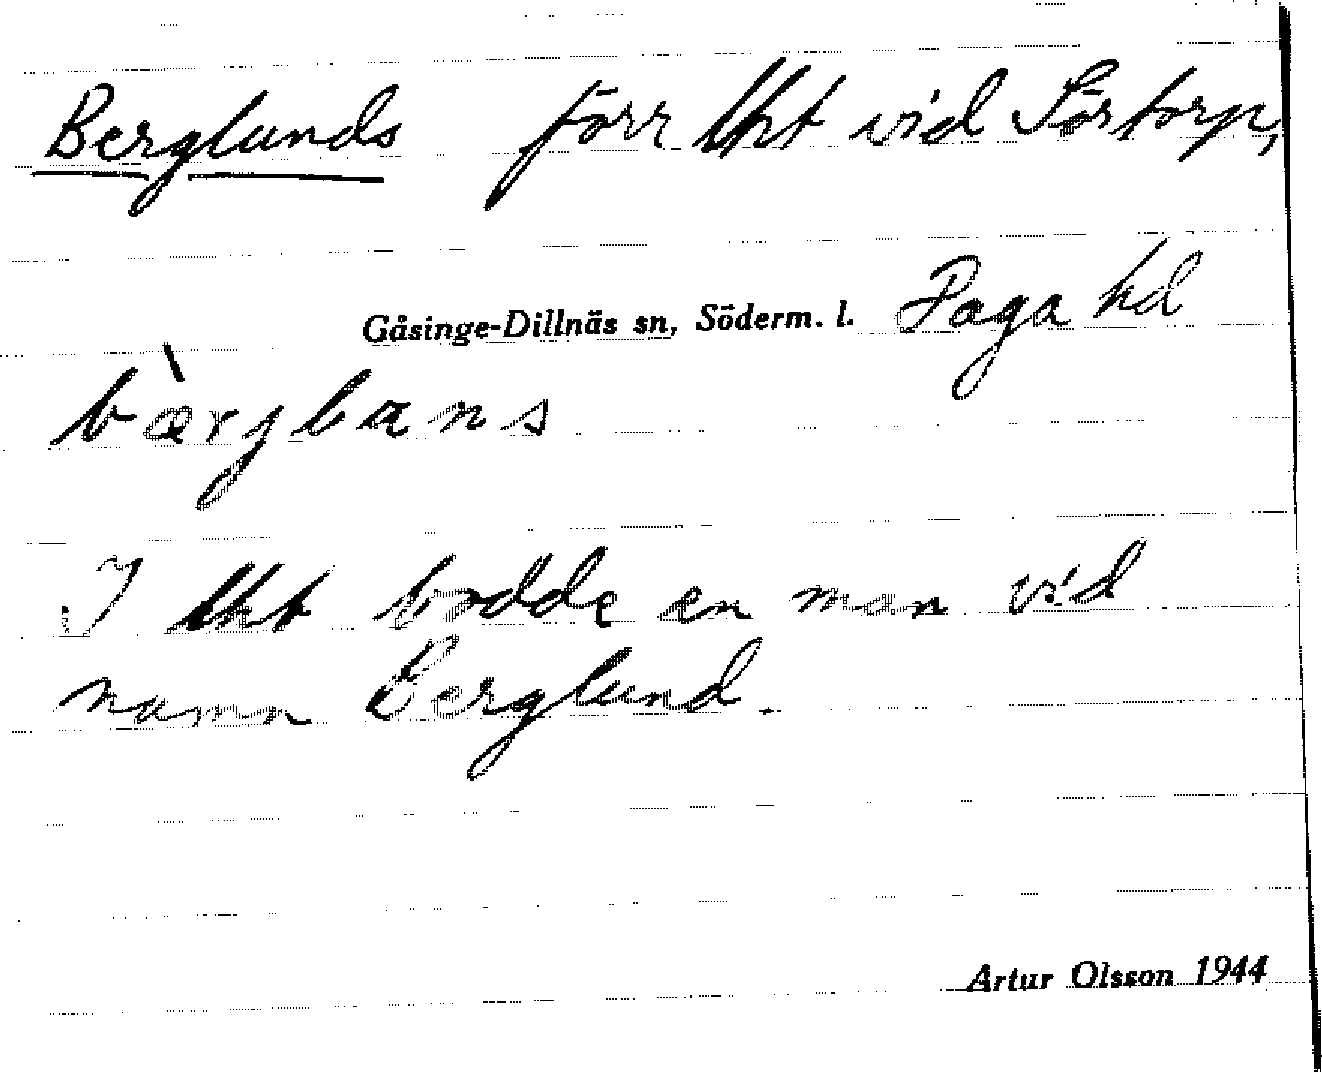 Berglunds förr lht vid Sörtorp,
Gåsinge-Dillnäs sn, Söderm. l. Daga hd
bærgluns
I lht bodde en man vid
namn Berglund.
Artur Olsson 1944